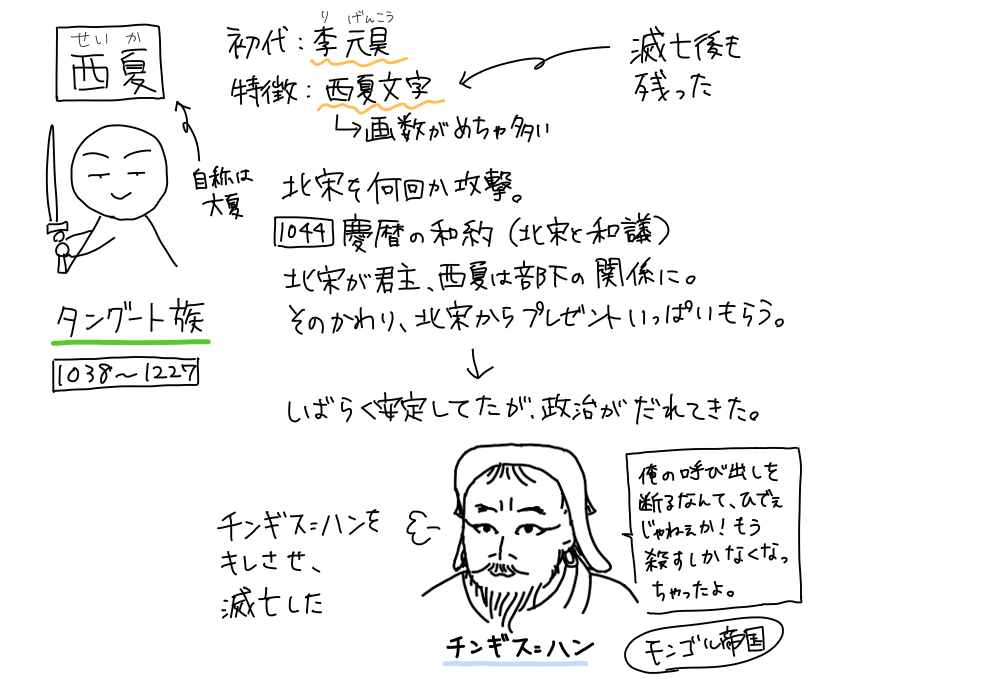 せいか
西夏
りげんこう
初代：李元昊
特徴：西夏文字
滅亡後も
残った
↳画数がめちゃ多い
自称は
大夏
北宋を何回か攻撃。
1044 慶暦の和約（北宋と和議）
北宋が君主、西夏は部下の関係に。
そのかわり、北宋からプレゼントいっぱいもらう。
タングート族
1038～1227
↓
しばらく安定してたが、政治がだれてきた。
チンギス=ハンを
キレさせ、
滅亡した
俺の呼び出しを
断るなんて、ひでぇ
じゃねぇか！もう
殺すしかなくなっ
ちゃったよ。
チンギス=ハン
モンゴル帝国